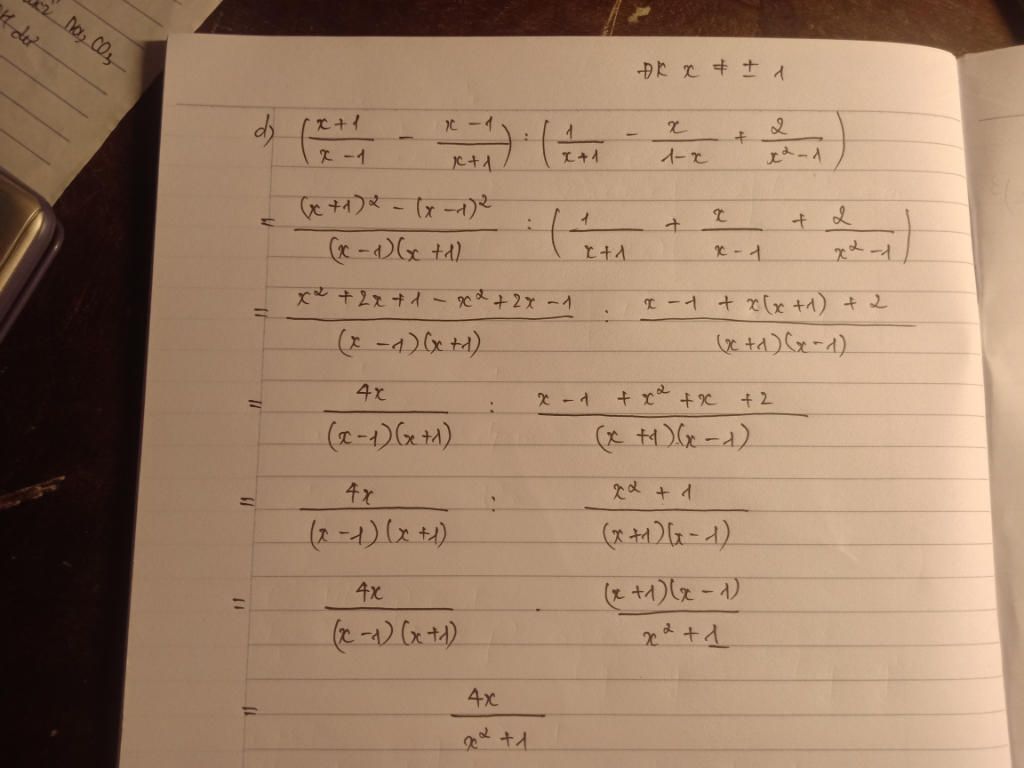 Na₂CO₃
ĐK x ≠ ± 1
d) ((x+1)/(x-1) - (x-1)/(x+1)) : (1/(x+1) - x/(1-x) + 2/(x²-1))
= ((x+1)² - (x-1)²)/((x-1)(x+1)) : (1/(x+1) + x/(x-1) + 2/(x²-1))
= (x² + 2x + 1 - x² + 2x - 1)/((x-1)(x+1)) : (x - 1 + x(x+1) + 2)/((x+1)(x-1))
= 4x/((x-1)(x+1)) : (x - 1 + x² + x + 2)/((x+1)(x-1))
= 4x/((x-1)(x+1)) : (x² + 1)/((x+1)(x-1))
= 4x/((x-1)(x+1)) . ((x+1)(x-1))/(x² + 1)
= 4x/(x² + 1)